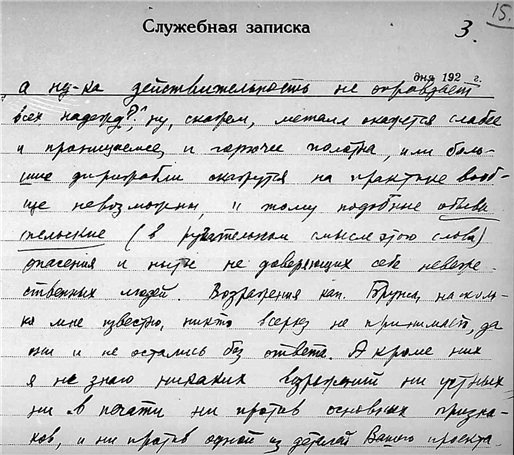 15.
Служебная записка
3.
дня 192 г.
а ну-ка действительность не оправдает
всех надежд?! ну, скажем, металл окажется слабее
и проницаемее, и горючее полотна, или боль-
шие дирижабли окажутся на практике вооб-
ще невозможны, и тому подобные обыва
тельские (в ругательном смысле этого слова)
опасения и нытье не доверяющих себе невеже-
ственных людей. Возражения кап. на сколь-
ко мне известно, никто всерьез не принимает, да
они и не остались без ответа. А кроме них
я не знаю никаких возражений ни устных,
ни в печати ни против основных призна-
ков, и ни против одной из деталей Вашего проекта.